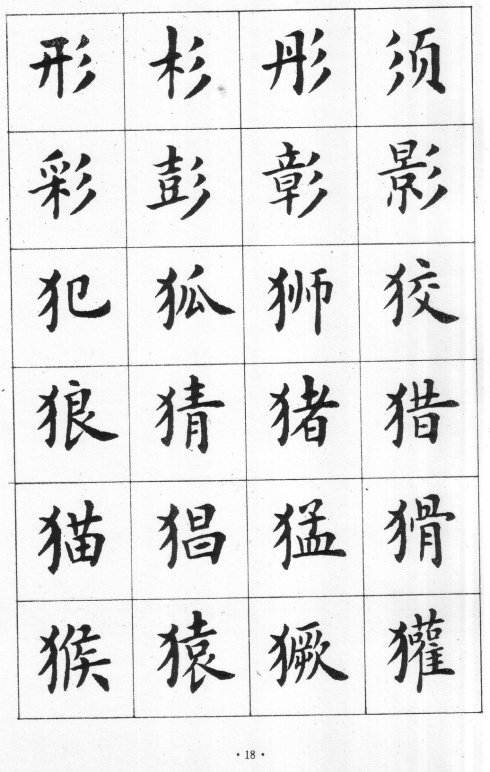 形杉彤须
彩彭彰影
犯狐狮狡
狼猜猪猎
猫猖猛猾
猴猿獗獾
·18·